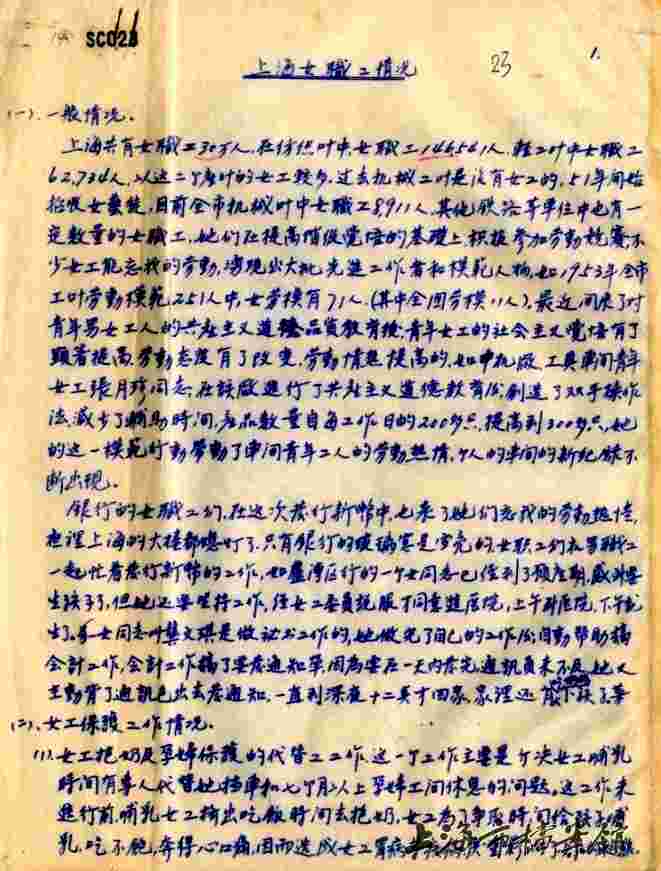 SC023
上海女職工情况
23
1.
(一).一般情况.
上海共有女職工30万人,在纺织叶中女職工146541人,轻工叶中女職工
62,734人,以这二个产叶的女工较多.过去机械工叶是没有女工的,51年间始
招收女艺徒,目前全市机械叶中女職工8,911人,其他铁路等单位中也有一
定数量的女職工,她们在提高階级覺悟的基礎上,積极参加劳動競赛,不
少女工能忘我的劳動,湧现出大批先進工作者和模范人物,如1953年全市
工叶劳動模范251人中,女劳模有71人.(其中全国劳模11人).最近间展了对
青年男女工人的共产主义道德品质教育後,青年女工的社会主义覺悟有了
顯著提高,劳動态度有了改变,劳動情绪提高的,如中机厰工具車间青年
女工張月珍同志,在该厰進行了共产主义道德教育後,創造了双手操作
法,減少了輔助时间,产品数量自每工作日的200多只,提高到300多只,她
的这一模范行動帶動了車间青年工人的劳動热情,个人的車间的新纪録不
断出现.
银行的女職工们,在这次发行新幣中,也表了她们忘我的劳動热情,
夜裡上海的大楼都熄灯了,只有银行的玻璃窗是雪亮的,女职工们和男職工
一起忙着发行新幣的工作,如盧湾区行的一个女同志已经到了预产期,感到要
生孩子了,但她还要坚持工作,经女工委员説服才同意進医院,上午到医院,下午就
生了.另一女同志叫龔文琪是做秘书工作的,她做完了自己的工作後,自動帮助搞
会計工作,会計工作搞了要发通知单,因为要在一天内发完,通訊員来不及,她又
主動背了通訊包出去发通知,一直到深夜十二点才回家,家裡还
(二).女工保護工作情况.
(1).女工把奶及孕婦保護的代替工工作,这一个工作主要是介决女工哺乳
时间有專人代替她档車和七个月以上孕婦工间休息的问题,这工作未
進行前,哺乳女工擠出吃飯时间去把奶,女工为了争取时间给孩子哺
乳,吃不飽,奔得心口痛,因而造成女工胃病
上海市檔案館